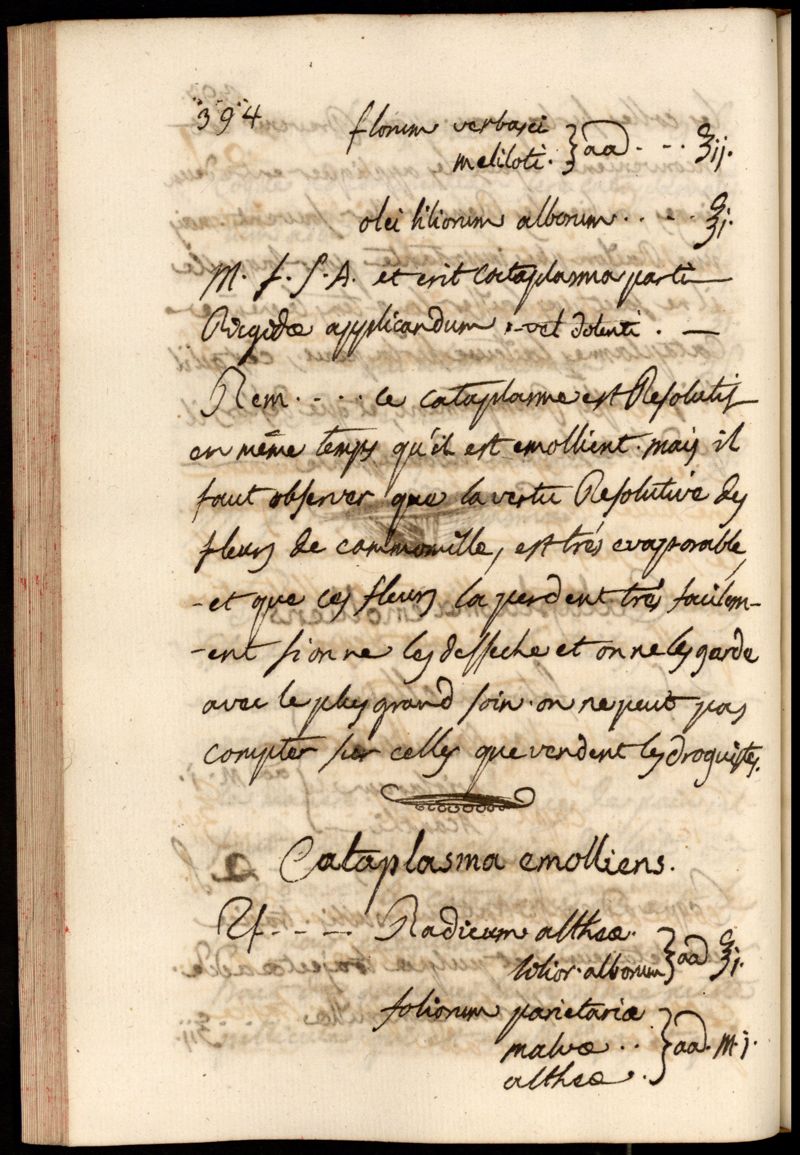 "3"9"4
florum verbasci } aā . - . ℥ij.
meliloti. }
olei liliorum alborum . . - . ℥j.
M. f. S. A. et erit Cataplasma parti
Rigidæ applicandum . vel dolenti . —
Rem . - . . ce cataplasme est Resolutif
en même temps qu'il est emollient. mais il
faut observer que la vertu Resolutive des
fleurs de cammomille, est trés evaporable,
-et que ces fleurs la perdent trés facilem-
-ent si on ne les desseche et on ne les garde
avec le plus grand soin. on ne peut pas
compter sur celles que vendent les droguistes.
Cataplasma emolliens.
♃ - - - . Radicum altheæ. } aā ℥j.
lilior. alborum }
foliorum parietariæ }
malvæ . . } aā. M.j.
altheæ . }